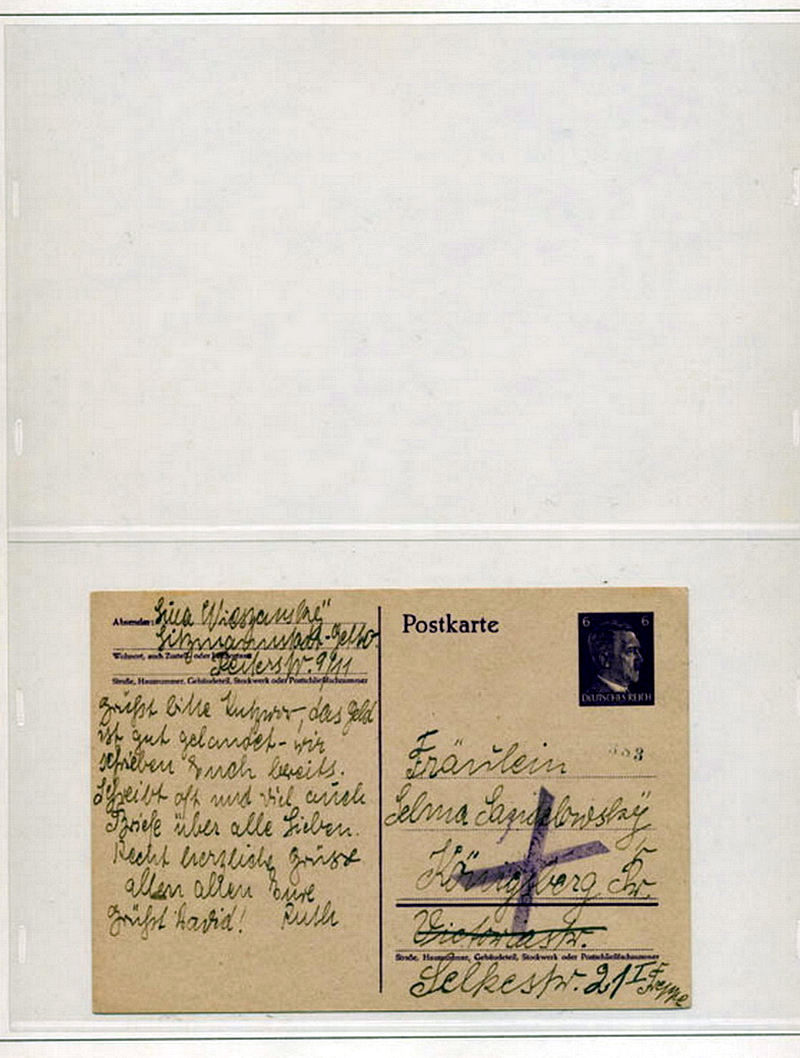 Absender:
Litzmannstadt-Getto
Wohnort, auch Zustell- oder
Straße, Hausnummer, Gebäudeteil, Stockwerk oder Postschließfachnummer
grüßt bitte das Geld
ist gut gelandet - wir
schrieben Euch bereits.
Schreibt oft und viel auch
Briefe über alle Lieben.
Recht herzliche Grüsse
allen allen Eure
grüßt David! Ruth
Postkarte
6 6
DEUTSCHES REICH
Fräulein
Selma
Königsberg Pr.
Victoriastr.
Straße, Hausnummer, Gebäudeteil, Stockwerk oder Postschließfachnummer
Selkestr. 21 I